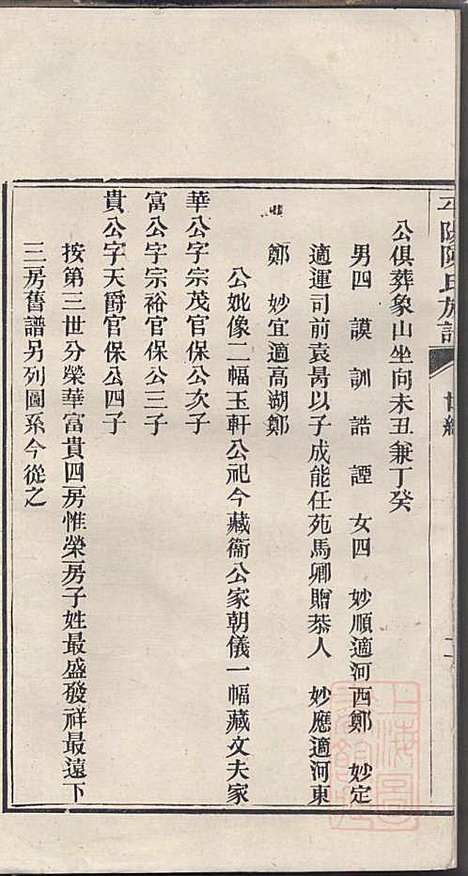 平陽陳氏族譜
世綜
二
公俱葬象山坐向未丑兼丁癸
男四 謨 訓 誥 諲 女四 妙順適河西鄭 妙定
適運司前袁昺以子成能任苑馬卿贈恭人 妙應適河東
鄭 妙宜適高湖鄭
公妣像二幅玉軒公祀今藏衞公家朝儀一幅藏文夫家
華公字宗茂官保公次子
富公字宗裕官保公三子
貴公字天爵官保公四子
按第三世分榮華富貴四房惟榮房子姓最盛發祥最遠下
三房舊譜另列圖系今從之
上海圖